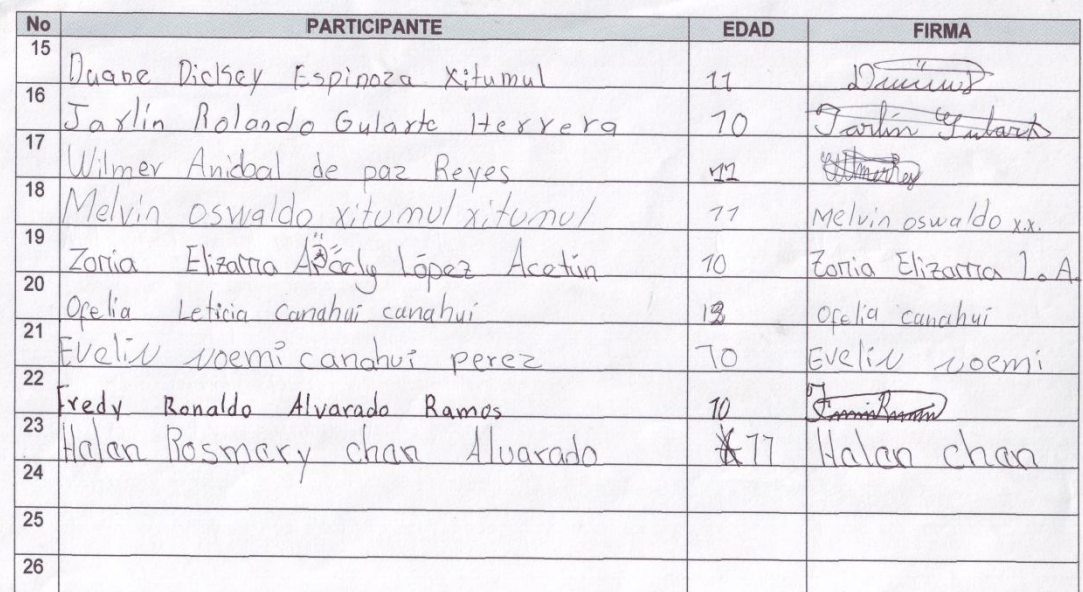 No PARTICIPANTE EDAD FIRMA
15 Duane Dicksey Espinoza Xitumul 11
16 Jarlin Rolando Gularte Herrera 10 Jarlin Gularte
17 Wilmer Anidbal de paz Reyes 11
18 Melvin oswaldo xitumul xitumul 11 Melvin oswaldo x.x.
19 Zonia Elizama López Acetún 10 Zonia Elizama L. A.
20 Ofelia Leticia Canahui canahui Ofelia canahui
21 Evelin noemi canahui perez 10 Evelin noemi
22 Fredy Ronaldo Alvarado Ramos 10
23 Halan Rosmary chan Alvarado 11 Halan chan
24
25
26